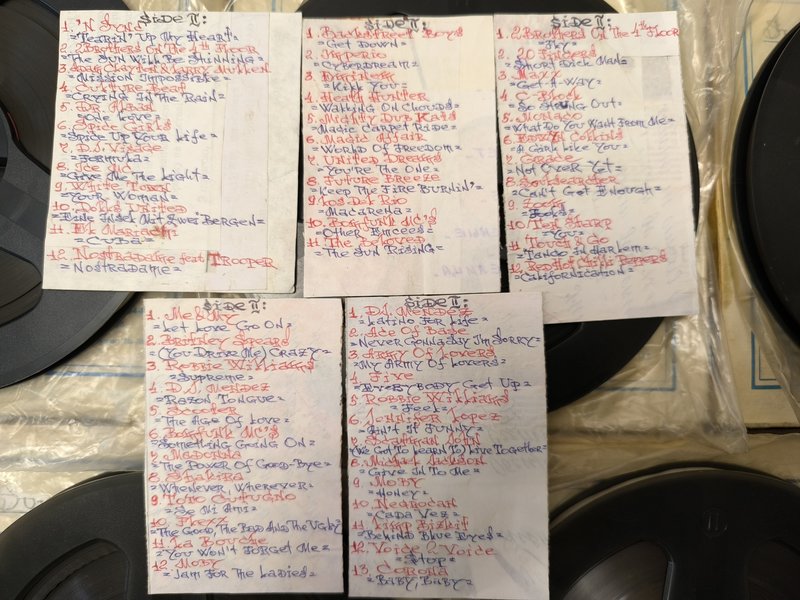 SiDE II:
1. 'N Sync
=Tearin' Up My Heart=
2. 2 Brothers On The 4th Floor
=The Sun Will Be Shinning=
=Mission Impossible=
4. Culture Beat
=Crying In The Rain=
=One Love=
6. Spice Girls
=Spice Up Your Life=
7. D.J. Visage
=Formula=
=Give Me The Light=
9. White Town
=Your Woman=
=Eine Insel Mit Zwei Bergen=
11. El Mariachi
=Cuba=
12. Nostradamo feat Trooper
=Nostradame=
SiDE II:
1. Backstreet Boys
=Get Down=
2. Imperio
=Cyberdream=
=Kill You=
4. Heath Hunter
=Walking On Clouds=
5. Mighty Dub Kats
=Magic Carpet Ride=
6. Magic Affair
=World Of Freedom=
7. United Dreams
=You're The One=
8. Future Breeze
=Keep The Fire Burnin'=
9. Los Del Rio
=Macarena=
10. Bomfunk MC's
=Other Emcees=
11. The Beloved
=The Sun Rising=
SiDE II:
1. 2 Brothers On The 4th Floor
=Fly=
2. 20 Fingers
=Short Dick Man=
3. Maxx
=Get-A-Way=
4. C-Block
=So Strung Out=
5. Monaco
=What Do You Want From Me=
6. Edwyn Collins
=A Girl Like You=
7. Grace
=Not Over Yet=
8. Soulsearcher
=Can't Get Enough=
9.
10. Ten Sharp
=You=
11. Touch & Go
=Tango In Harlem=
12. Red Hot Chili Peppers
=Californication=
SiDE II:
1. Me & My
=Let Love Go On=
2. Britney Spears
=(You Drive Me) Crazy=
3. Robbie Williams
=Supreme=
4. D.J. Mendez
=Razor Tongue=
5. Scooter
=The Age Of Love=
6. Bomfunk MC's
=Something Going On=
7. Madonna
=The Power Of Good-Bye=
8. Shakira
=Whenever, Wherever=
9. Toto Cutugno
=Se Mi Ami=
=The Good, The Bad And The Ugly=
11. La Bouche
=You Won't Forget Me=
12. Moby
=Jam For The Ladies=
SiDE II:
1. D.J. Mendez
=Latino For Life=
2. Ace Of Base
=Never Gonna Say I'm Sorry=
3. Army Of Lovers
=My Army Of Lovers=
4. Five
=Everybody Get Up=
5. Robbie Williams
=Feel=
6. Jennifer Lopez
=Ain't It Funny=
7. Scatman John
=(We Got To Learn To) Live Together=
8. Michael Jackson
=Give In To Me=
9. Moby
=Honey=
10. Negrocan
=Cada Vez=
11. Limp Bizkit
=Behind Blue Eyes=
12. Voice 2 Voice
=Stop=
13. Corona
=Baby, Baby=